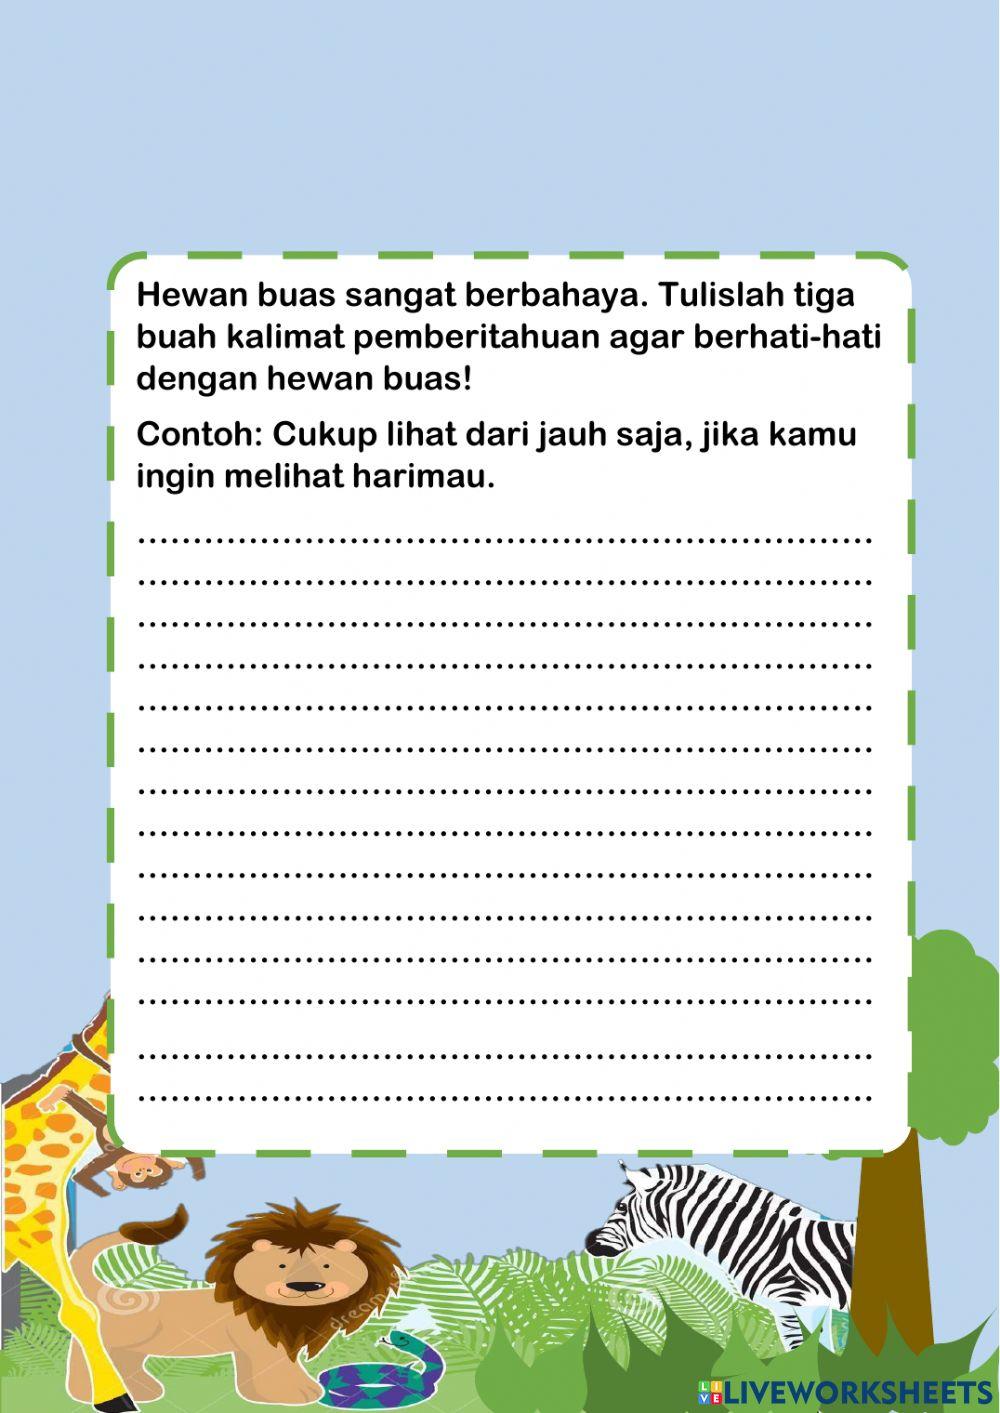 Hewan buas sangat berbahaya. Tulislah tiga
buah kalimat pemberitahuan agar berhati-hati
dengan hewan buas!
Contoh: Cukup lihat dari jauh saja, jika kamu
ingin melihat harimau.
..................................................................
..................................................................
..................................................................
..................................................................
..................................................................
..................................................................
..................................................................
..................................................................
..................................................................
..................................................................
..................................................................
..................................................................
..................................................................
..................................................................
LIVEWORKSHEETS